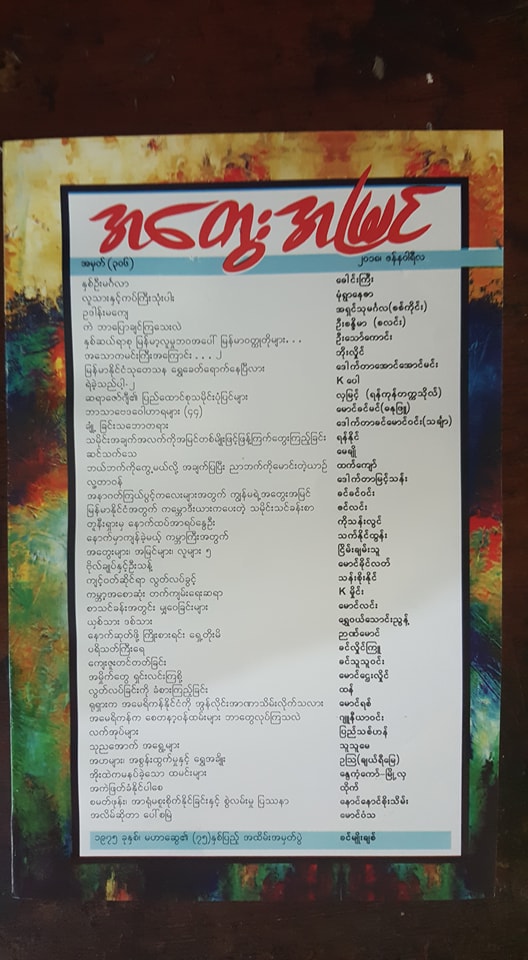 အတွေးအမြင်
အမှတ် (၃၀၆) ၂၀၁၈၊ ဇန်နဝါရီလ
နှစ်ဦးမင်္ဂလာ ခေါင်းကြီး
လူသားနှင့်ကပ်ကြီးသုံးပါး မုံရွာနေဇာ
ဥဒါန်းမကျေ အရှင်သုမင်္ဂလ(စစ်ကိုင်း)
ကဲ ဘာပြောချင်ကြသေးလဲ ဦးစန္ဒိမာ (စလင်း)
နှစ်ဆယ်ရာစု မြန်မာ့လူမှုဘဝအပေါ် မြန်မာဝတ္ထုတိုများ... ဦးသော်ကောင်း
အသောကမင်းကြီးအကြောင်း ... ၂ ဘိုးလှိုင်
မြန်မာနိုင်ငံသုတေသန ရွှေခေတ်ရောက်နေပြီလား ဒေါက်တာအောင်အောင်မင်း
ရဲခဲ့သည်ပါ့-၂ K ပေါ
ဆရာဇော်ဂျီ၏ ပြည်ထောင်စုသမိုင်းပုံပြင်များ လှမြင့် (ရန်ကုန်တက္ကသိုလ်)
ဘာသာဗေဒဝေါဟာရများ (၄၄) မောင်ခင်မင်(ဓနုဖြူ)
ချို့ ခြင်းသဘောတရား ဒေါက်တာခင်မောင်ဝင်း(သင်္ချာ)
သမိုင်းအချက်အလက်ကိုအမြင်တစ်မျိုးဖြင့်ဖြန့်ကြက်တွေးကြည့်ခြင်း ရန်နိုင်
ဆင်သက်သေ မေချို
ဘယ်ဘက်ကိုတွေ့မယ်လို့ အချက်ပြပြီး ညာဘက်ကိုမောင်းတဲ့ယာဉ် ထက်ကျော်
လူ့တာဝန် ဒေါက်တာမြင့်သန်း
အနာဂတ်ကြယ်ပွင့်ကလေးများအတွက် ကျွန်မရဲ့အတွေးအမြင် ခင်ခင်ဝင်း
မြန်မာနိုင်ငံအတွက် ကမ္ဘောဒီးယားကပေးတဲ့ သမိုင်းသင်ခန်းစာ ဇင်လင်း
တူနီးရှားမှ နောက်ထပ်အာရပ်နွေဦး ကိုသန်းလွင်
နောက်မှာကျန်ခဲ့မယ့် ကမ္ဘာကြီးအတွက် သက်နိုင်ထွန်း
အတွေးများ၊ အမြင်များ၊ လူများ ၅ ငြိမ်းချမ်းသူ
ဗိုလ်ချုပ်နှင့်ဦးသန့် မောင်ခိုင်လတ်
ကျင့်ဝတ်ဆိုင်ရာ လွတ်လပ်ခွင့် သန်းစိုးနိုင်
ကမ္ဘာ့အစောဆုံး တက်ကျမ်းရေးဆရာ K မှိုင်း
စာသင်ခန်းအတွင်း မျှဝေခြင်းများ မောင်လင်း
ယုံသား ဒစ်သား ရွှေဝယ်သောင်းညွန့်
နောက်ဆုတ်ဖို့ ကြိုးစားရင်း ရှေ့တိုးမိ ဉာဏ်မောင်
ပရိသတ်ကြီးရေ ခင်လှိုင်ကြူ
ကျေးဇူးတင်တတ်ခြင်း ခင်သူသူဝင်း
အမှိုက်တွေ ရှင်းလင်းကြစို့ မောင်ငွေးလှိုင်
လွတ်လပ်ခြင်းကို ခံစားကြည့်ခြင်း ထန်
ရုရှားက အမေရိကန်နိုင်ငံကို အွန်လိုင်းအာဏာသိမ်းလိုက်သလား မောင်ရစ်
အမေရိကန်က စေတနာ့ဝန်ထမ်းများ ဘာတွေလုပ်ကြသလဲ ဂျူနီယာဝင်း
လက်အုပ်များ ပြည်သစ်ဟန်
သုညအောက် အရွေ့များ သူသူမေ
အဟများ၊ အစွန်းထွက်မှုနှင့် ရွှေအချိုး ဥဩ(ချယ်ရီမြေ)
အိုးထဲကမနပ်ခဲ့သော ထမင်းများ နွေကံ့ကော်-မြို့လှ
အကဲဖြတ်ခံနိုင်ပါစေ ထိုက်
စမတ်ဖုန်း၊ အာရုံမစူးစိုက်နိုင်ခြင်းနှင့် စွဲလမ်းမှု ပြဿနာ နောင်နောင်စိုးသိမ်း
အလိမ်ဆိုတာ ပေါ်စမြဲ မောင်ပံသ
၁၉၇၅ ခုနှစ်၊ မဟာဆွေ၏ (၇၅)နှစ်ပြည့် အထိမ်းအမှတ်ပွဲ ခင်မျိုးချစ်